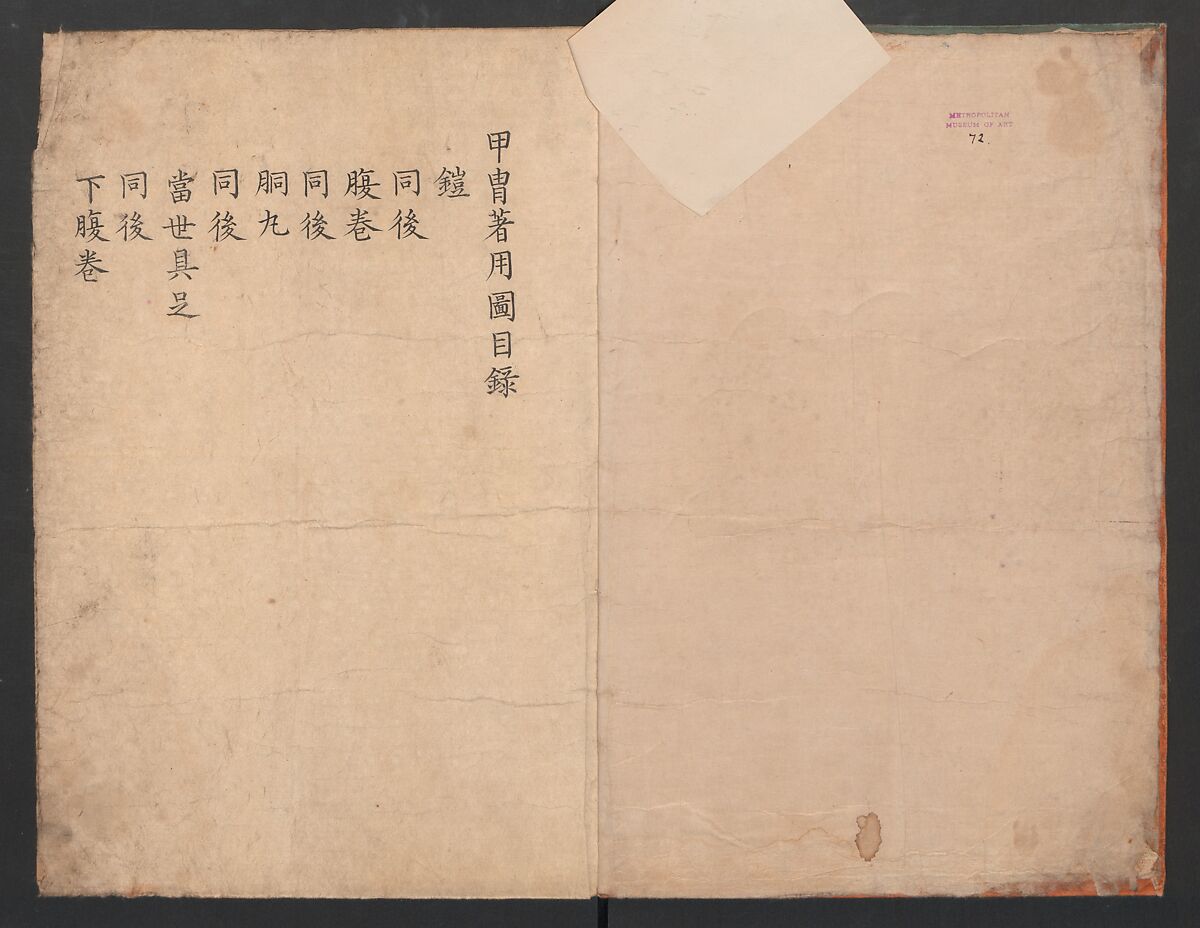 甲冑著用圖目録
鎧
同後
腹巻
同後
胴丸
同後
當世具足
同後
下腹巻
METROPOLITAN
MUSEUM OF ART
72.